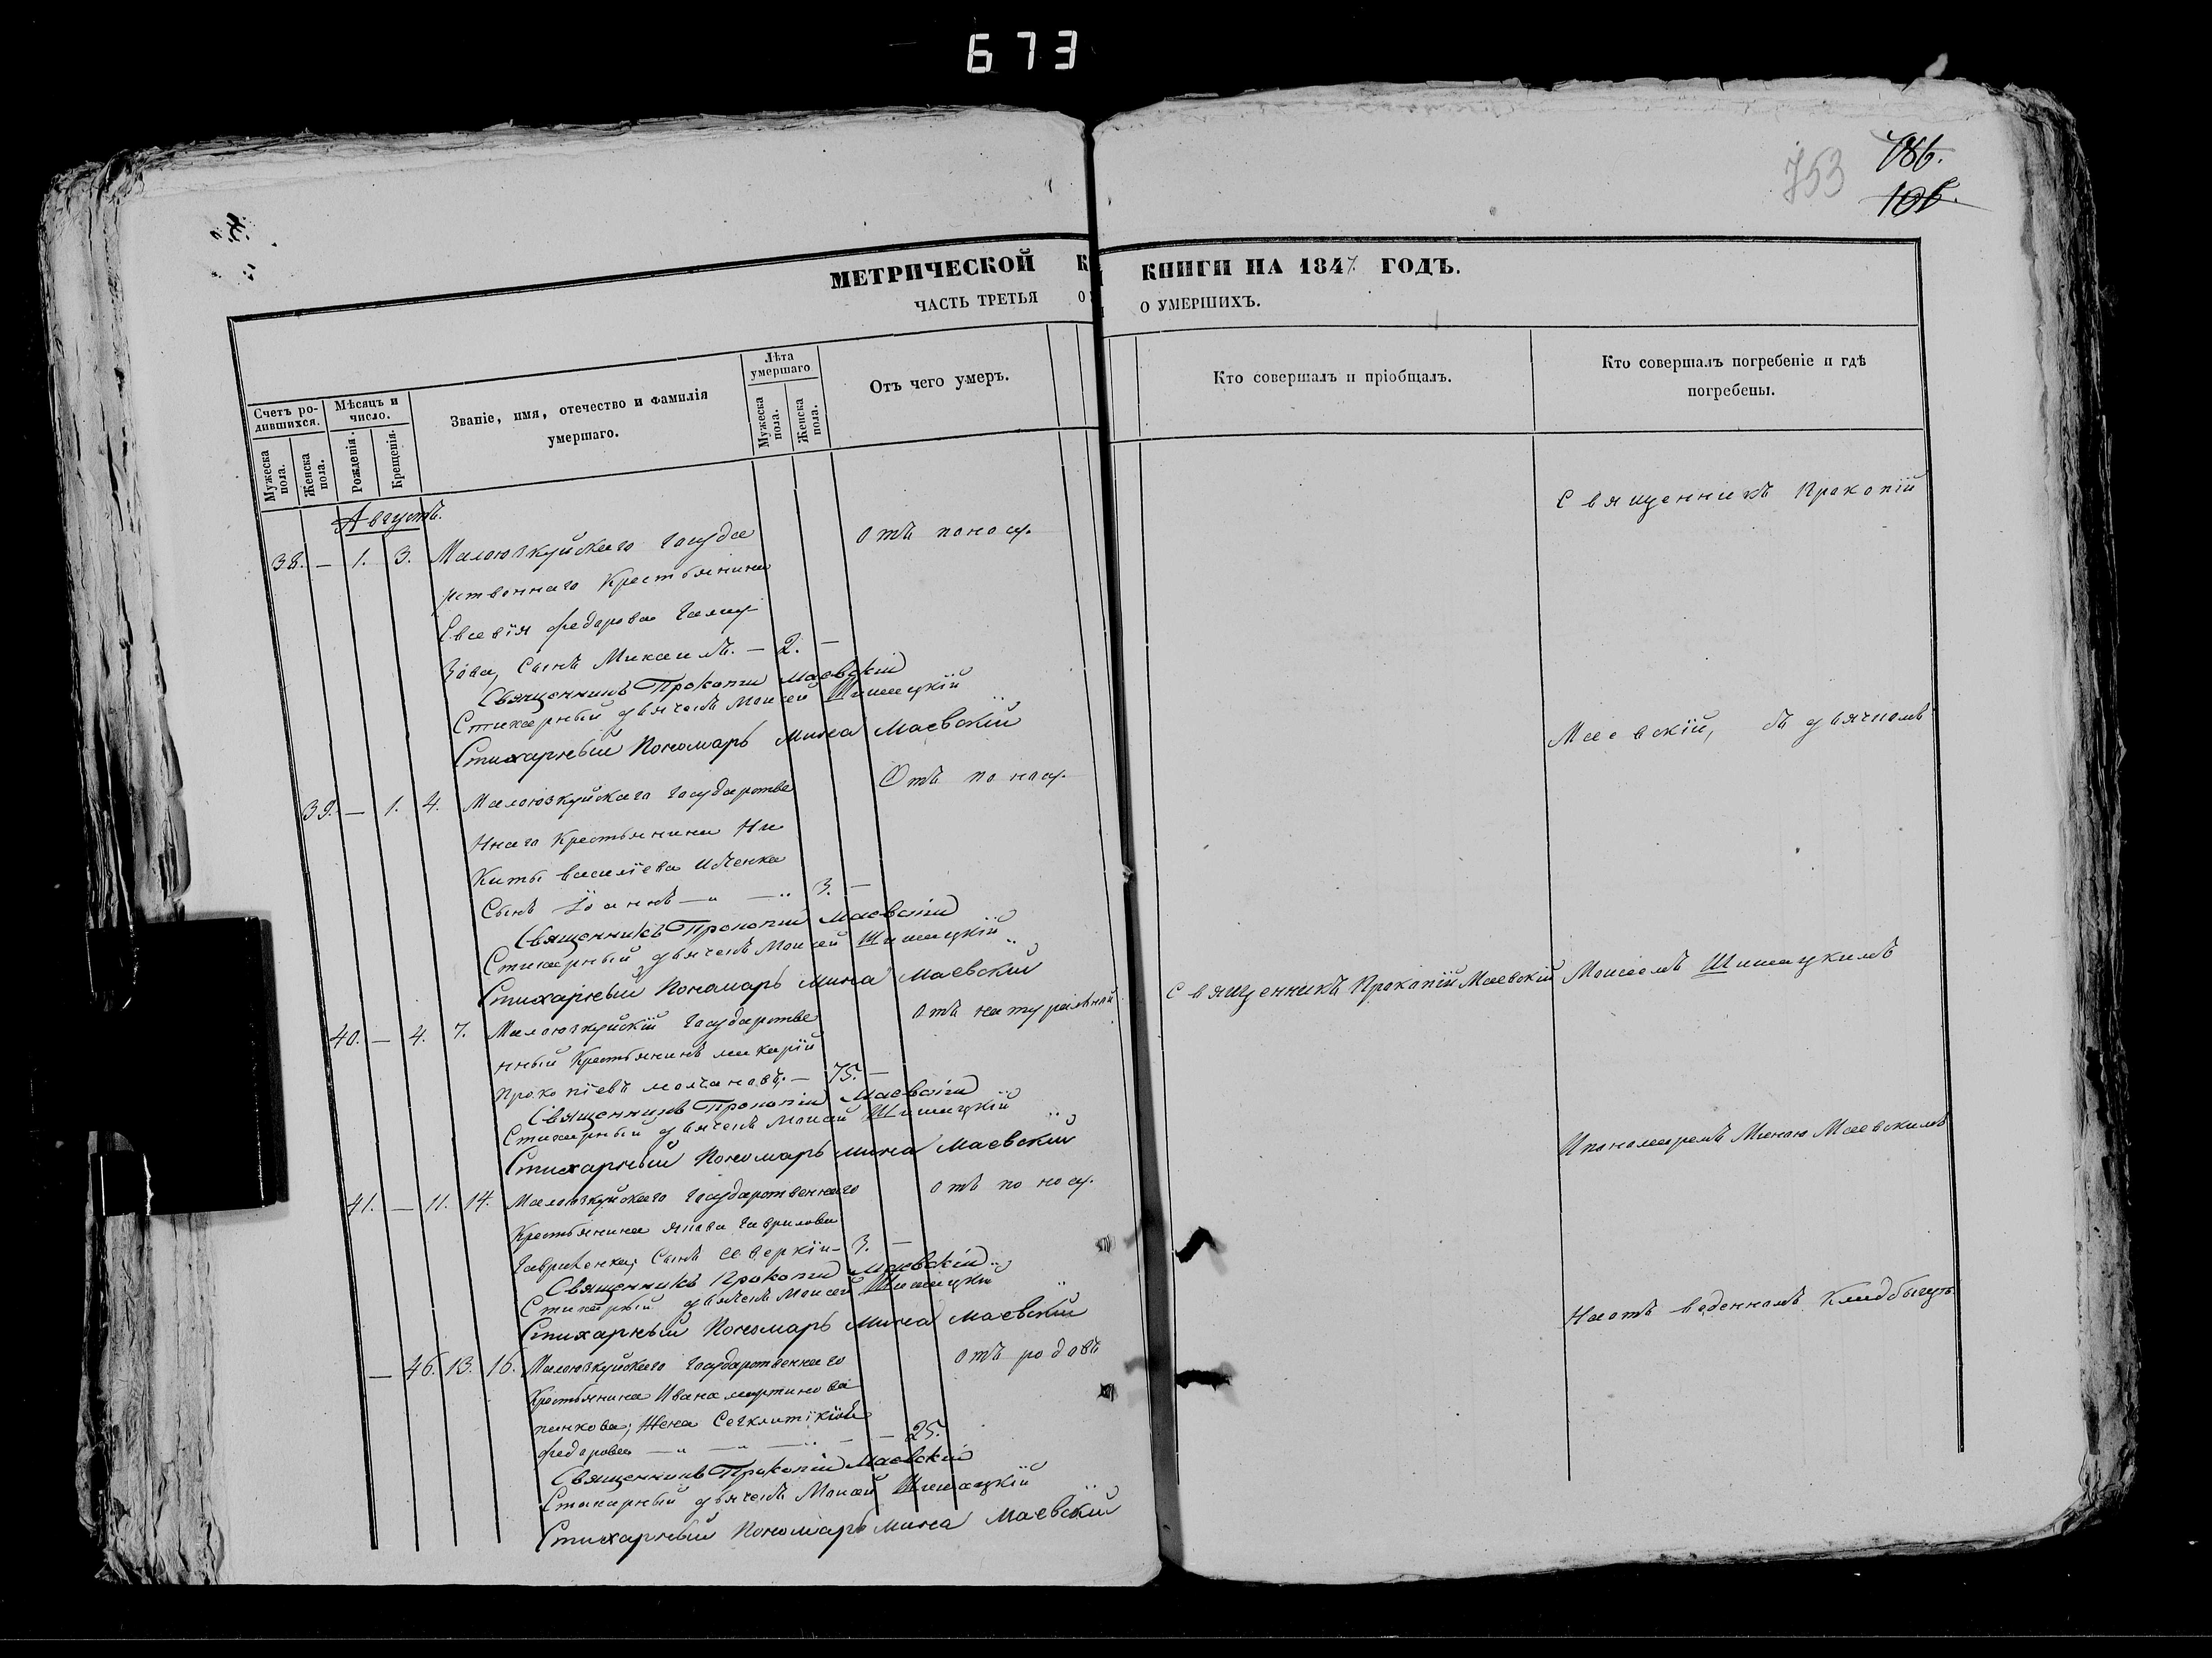 673
753
786.
106.
МЕТРИЧЕСКОЙ К
ЧАСТЬ ТРЕТЬЯ О
Счетъ ро-
дившихся.
Мужеска
пола.
Женска
пола.
Мѣсяцъ и
число.
Рожденія.
Крещенія.
Званіе, имя, отечество и фамилія
умершаго.
Лѣта
умершаго
Мужеска
пола.
Женска
пола.
Отъ чего умеръ.
Августъ.
38. — 1. 3. Малоюзкуйскаго Госуда отъ поносу.
рственнаго Крестьянина
Евсевія Федорова
зова, Сынъ Михаилъ. — 2. —
Священникъ Прокопій Маевскій
Стихарный дьячекъ Моисей Шишацкій
Стихарный Пономарь Мина Маевскій
39. — 1. 4. Малоюзкуйскаго Государстве Отъ поносу.
ннаго Крестьянина Ни
киты Василіева
Сынъ Іоаннъ — " — " 3. —
Священникъ Прокопій Маевскій
Стихарный дьячекъ Моисей Шишацкій
Стихарный Пономарь Мина Маевскій
40. — 4. 7. Малоюзкуйскій Государстве отъ натуральной
нный Крестьянинъ Макарій
Прокопіевъ Молчановъ. — 75. —
Священникъ Прокопій Маевскій
Стихарный дьячекъ Моисей Шишацкій
Стихарный Пономарь Мина Маевскій
41. — 11. 14. Малоюзкуйскаго Государственнаго отъ поносу.
Крестьянина Якова Гаврилова
Гавриленка, Сынъ Северкій — 3. —
Священникъ Прокопій Маевскій
Стихарный дьячекъ Моисей Шишацкій
Стихарный Пономарь Мина Маевскій
— 46. 13. 16. Малоюзкуйскаго Государственнаго отъ родовъ
Крестьянина Ивана Мартинова
пенкова; Жена
Федорова — " — " — " — — 25.
Священникъ Прокопій Маевскій
Стихарный дьячекъ Моисей Шишацкій
Стихарный Пономарь Мина Маевскій
КНИГИ НА 1847 ГОДЪ.
О УМЕРШИХЪ.
Кто совершалъ и пріобщалъ.
Кто совершалъ погребеніе и гдѣ
погребены.
Священникъ Прокопій
Маевскій, съ дьячкомъ
Священникъ Прокопій Маевскій
Моисеемъ Шишацкимъ
И пономаремъ Миною Маевскимъ
На отъ веденномъ Кладбыщѣ